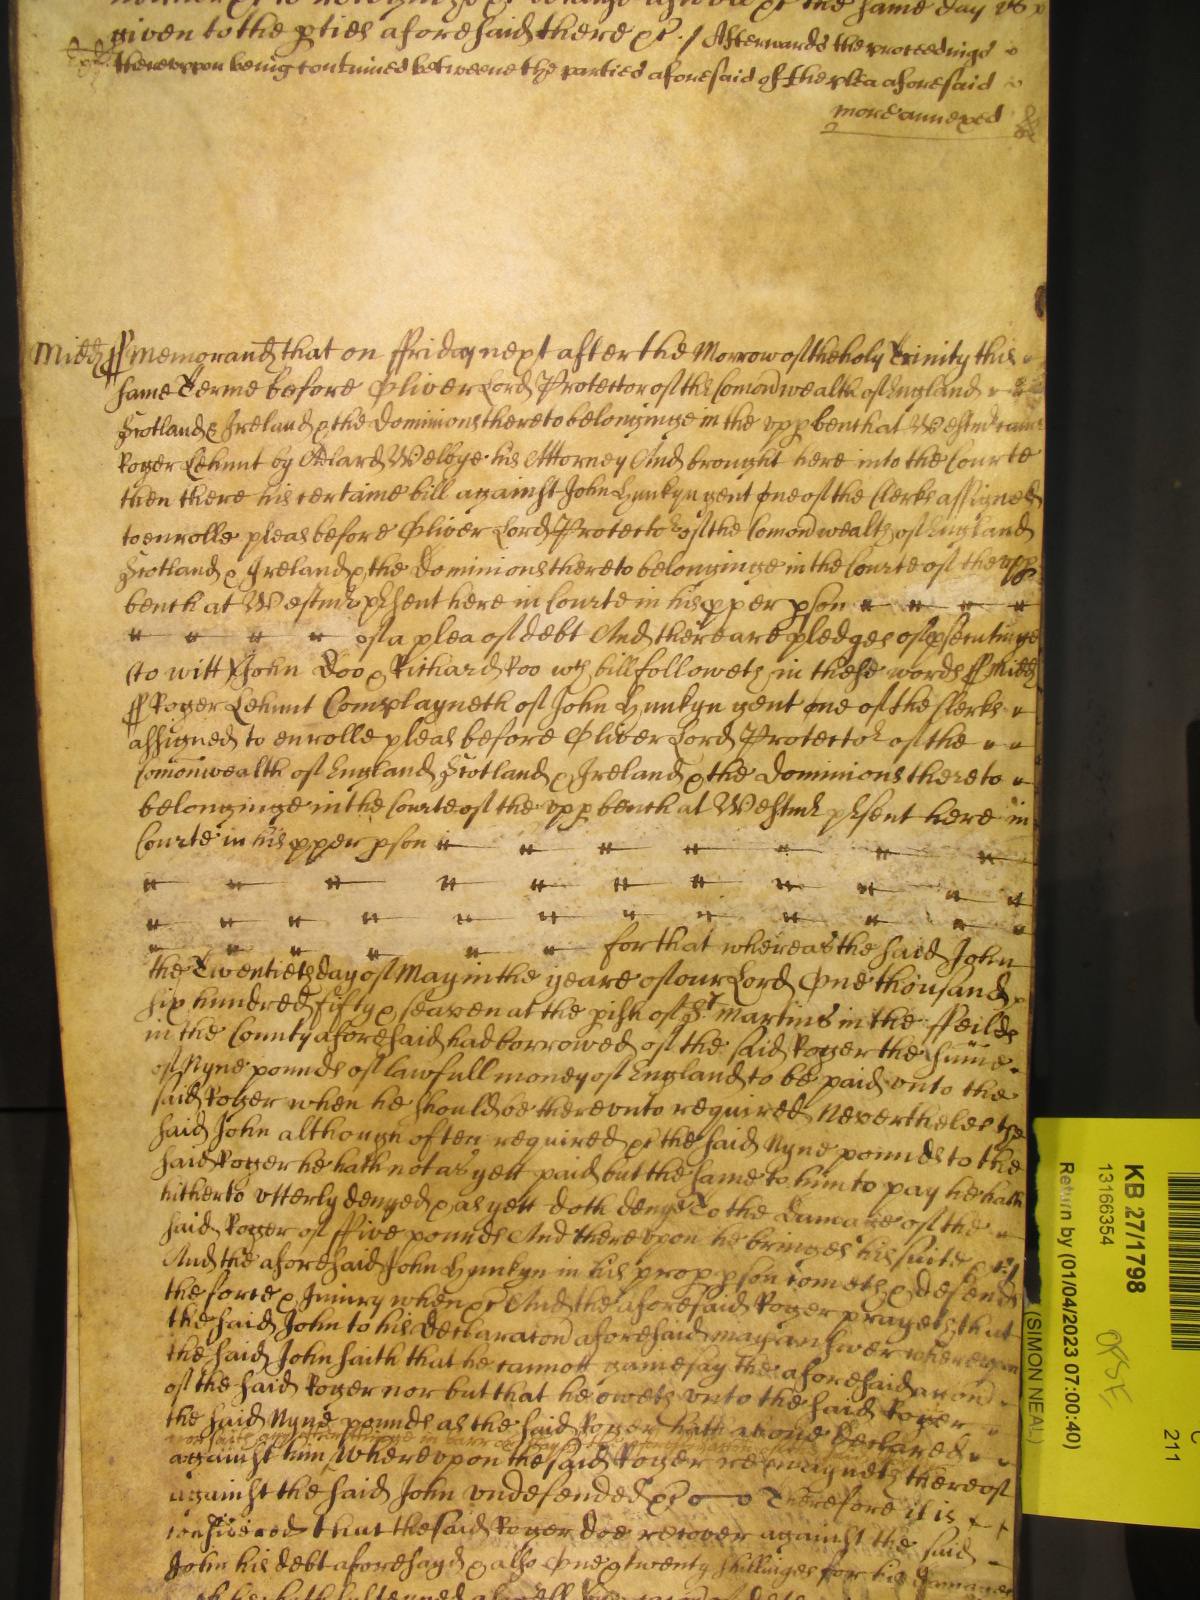 given to the pties aforesaid there &c ./ Afterwards the proceedings
thereupon being continued betweene the parties aforesaid of the plea aforesaid
more annexed
Midd ss Memorand that on ffriday next after the Morrow of the holy Trinity this
same Terme before Oliver Lord Protector of the Comonwealth of England
Scotland & Ireland & the Dominions thereto belonginge in the upp bench at Westm came
Roger Lehunt by Adlard Welbye his Attorney And brought here into the Courte
then there his certaine bill against John Hunkyn gent one of the Clerks assigned
to enrolle pleas before Oliver Lord Protector of the Comonwealth of England
Scotland & Ireland & the Dominions thereto belonginge in the Courte of the upp
bench at Westmr psent here in Courte in his pper pson
of a plea of debt And there are pledges of psecutinge
(to witt) John Doo & Richard Roo wch bill followeth in these words ss Midd
ss Roger Lehunt Complayneth of John Hunkyn gent one of the Clerks
assigned to enrolle pleas before Oliver Lord Protector of the
Comonwealth of England Scotland & Ireland & the Dominions thereto
belonginge in the Courte of the upp bench at Westmr psent here in
Courte in his pper pson
for that whereas the said John
the Twentieth day of May in the yeare of our Lord One thousand
six hundred fifty & seaven at the pish of St Martins in the ffeilds
in the County aforesaid had borrowed of the said Roger the summe
of Nyne pounds of lawfull money of England to be paid unto the
said Roger when he should be thereunto required Neverthelesse the
said John although often required &c the said Nyne pounds to the
said Roger he hath not as yett paid but the same to him to pay he hath
hitherto utterly denyed & as yett doth deny To the Damage of the
said Roger of ffive pounds And thereupon he bringes his suite &c
And the aforesaid John Hunkyn in his prop pson cometh & defends
the force & Iniury when &c And the aforesaid Roger prayeth that
the said John to his Declaracon aforesaid may answer whereupon
the said John saith that he cannott gainesay the aforesaid accon
of the said Roger nor but that he oweth unto the said Roger
the said Nyne pounds as the said Roger hath above Declared
against him Whereupon the said Roger remayneth thereof
against the said John undefended &c Therefore it is
considered that the said Roger doe recover against the said
John his debt aforesayd & also One & twenty shillinges for his damages
KB 27/1798
13166354
Return by (01/04/2023 07:00:40)
(SIMON NEAL)
211